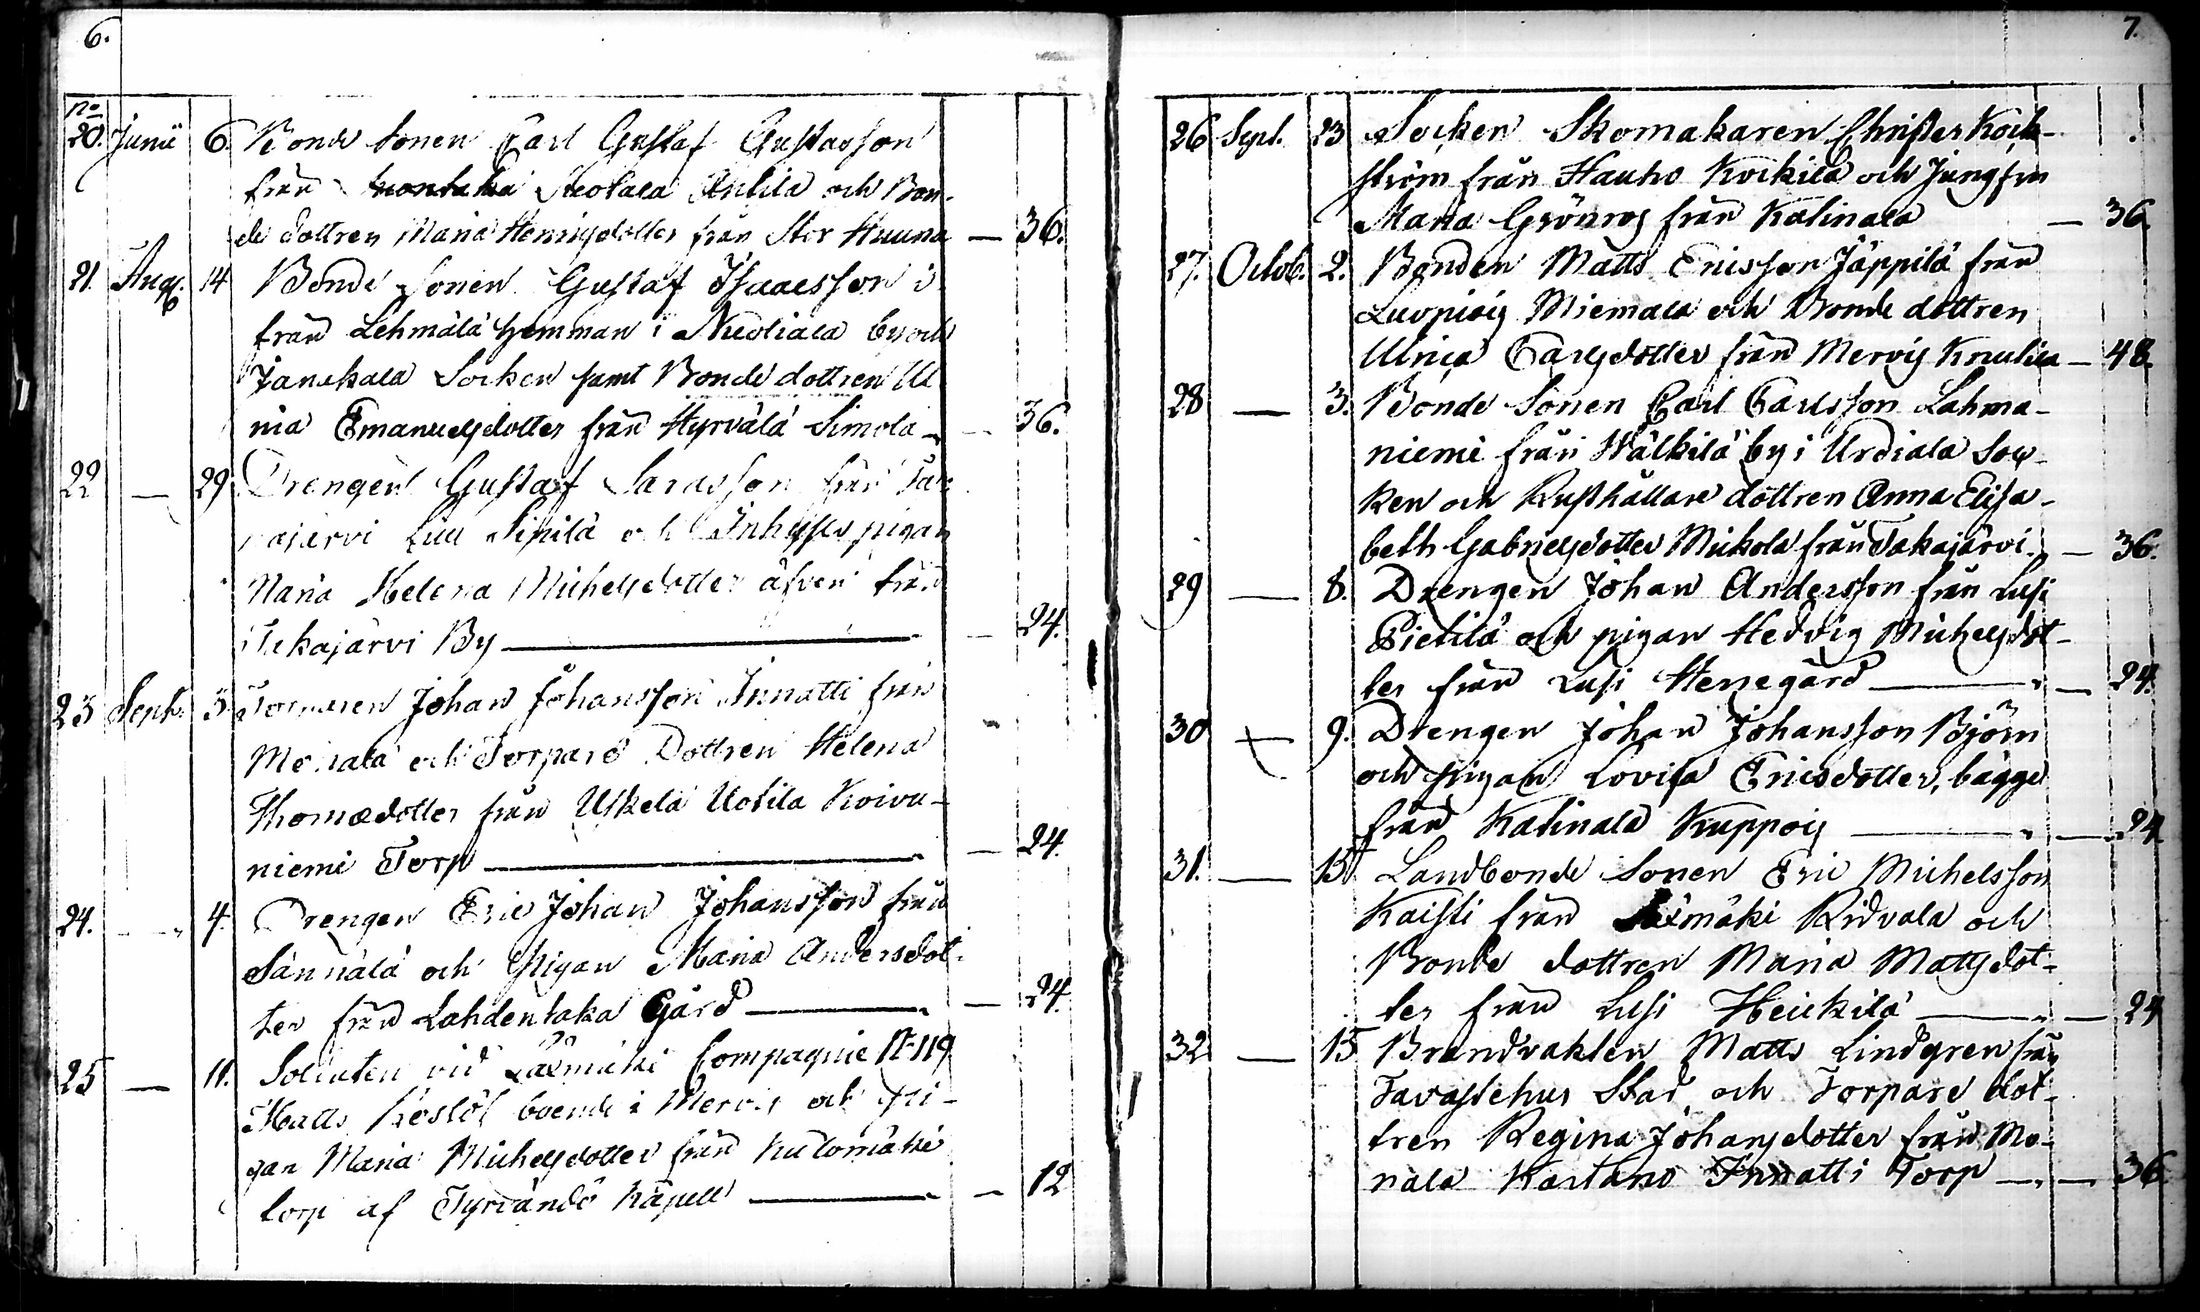 6.
No
20. Junii 6. Bonde Sonen Carl Gustaf Gustafsson
från Antila och Bon-
de dottren Maria Henricsdotter från Stor Huuna — 36.
21. Aug. 14 Bonde Sonen Gustaf Isaacsson
från Lehmälä hemman i by och
Janakala Socken samt Bonde dottren Ul-
rica Emanuelsdotter från Hyrvälä Simola — 36.
22 — 29. Drengen Gustaf från
Sipilä och Inhyses pigan
Maria Helena Michelsdotter äfven från
Takajärvi By — 24.
23 Sept. 3. Torparen Johan Johansson Innatti från
Monala och Torpare Dottren Helena
Thomædotter från Uskela Uotila Koivu-
niemi Torp — 24.
24. — 4. Drengen Eric Johan Johansson från
Sännälä och Pigan Maria Andersdot-
ter från Lahdentaka Gård — 24.
25 — 11. Soldaten vid Compagnie No 119
Matts boende i Mervis och Pi-
gan Maria Michelsdotter från Kutomäki
torp af Tyrvändö Kapell — 12
7.
26 Sept. 23 Socken Skomakaren Christer Köck-
ström från Hauho Kockila och Jungfru
Maria Grönroos från Katinala — 36.
27. Octob. 2. Bonden Matts Ericsson Jäppilä från
Miemala och Bonde dottren
Ulrica Carlsdotter från Mervis Knutila — 48.
28 — 3. Bonde Sonen Carl Carlsson Lahma-
niemi från Wälkilä by i Urdiala Soc-
ken och Rusthållare dottren Anna Elisa-
beth Gabrielsdotter Mickola från Takajärvi — 36.
29 — 8. Drengen Johan Andersson från Lusi
Pietilä och pigan Hedvig Michelsdot-
ter från Lusi Herregård — 24.
30 — 9. Drengen Johan Johansson Björn
och pigan Lovisa Ericsdotter, bägge
från Katinala Kuppois — 24
31. — 15. Landbonde Sonen Eric Michelsson
Kaisti från Ridvala och
Bonde dottren Maria Mattsdot-
ter från Lusi Heickilä — 24
32 — 15 Brandvakten Matts Lindgren från
Tavastehus Stad och Torpare dot-
tren Regina Johansdotter från Mo-
nala Kartano Innatti Torp — 36